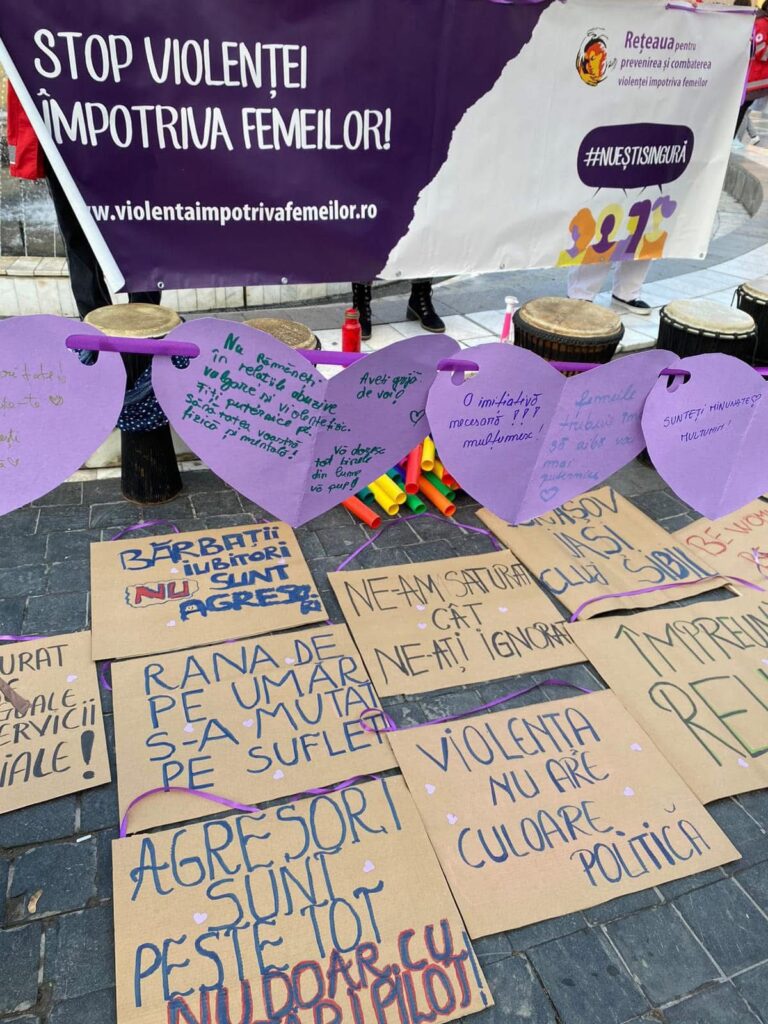 STOP VIOLENȚEI
ÎMPOTRIVA FEMEILOR!
www.violentaimpotrivafemeilor.ro
Rețeaua pentru
prevenirea și combaterea
violenței împotriva femeilor
#NUEȘTISINGURĂ
Nu rămâneți
în relații abuzive
vulgare și violente fizic.
Fiți puternice pe
sănătatea voastră
fizică și mentală!
Aveți grijă
de voi!
Vă doresc
tot binele
din lume
vă pup!
O inițiativă
necesară !!!
mulțumesc!
femeile
trebuie
să aibă
mai
puternice
SUNTEȚI MINUNATE
MULTUMIM!
BĂRBAȚII
IUBITORI
NU SUNT
AGRESORI
NE-AM SATURAT
CÂT
NE-AȚI IGNORAT
BRAȘOV
IAȘI
CLUJ SIBIU
BE WOM
RANA DE
PE UMĂR
S-A MUTAT
PE SUFLET
ÎMPREUN
VIOLENȚA
NU ARE
CULOARE
POLITICĂ
AGRESORI
SUNT
PESTE TOT
NU DOAR CU